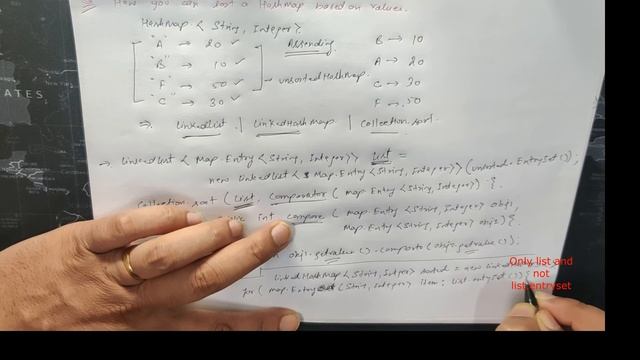 How you can sort a HashMap based on values.
HashMap < String, Integer>
"A" → 20 ✓ Assending B → 10
"B" → 10 ✓ A → 20
"F" → 50 ✓ → unsortedHashMap. C → 30
"C" → 30 ✓ F → 50
⇒ LinkedList | LinkedHashMap | Collection.sort
→ LinkedList < Map.Entry < String, Integer>> list =
new LinkedList < Map.Entry < String, Integer>> (unsorted.EntrySet());
Collection.sort (List, Comparator ( map.Entry < String, Integer>) {
int compare ( map.Entry < String, Integer> obj1,
Map.Entry < String, Integer> obj2) {
obj1.getvalue().compareto(obj2.getvalue());
LinkedHashMap < String, Integer> sorted = new
for ( map.Entry (String, Integer> Item : list.entrySet()) {
Only list and
not
list.entryset
ATES